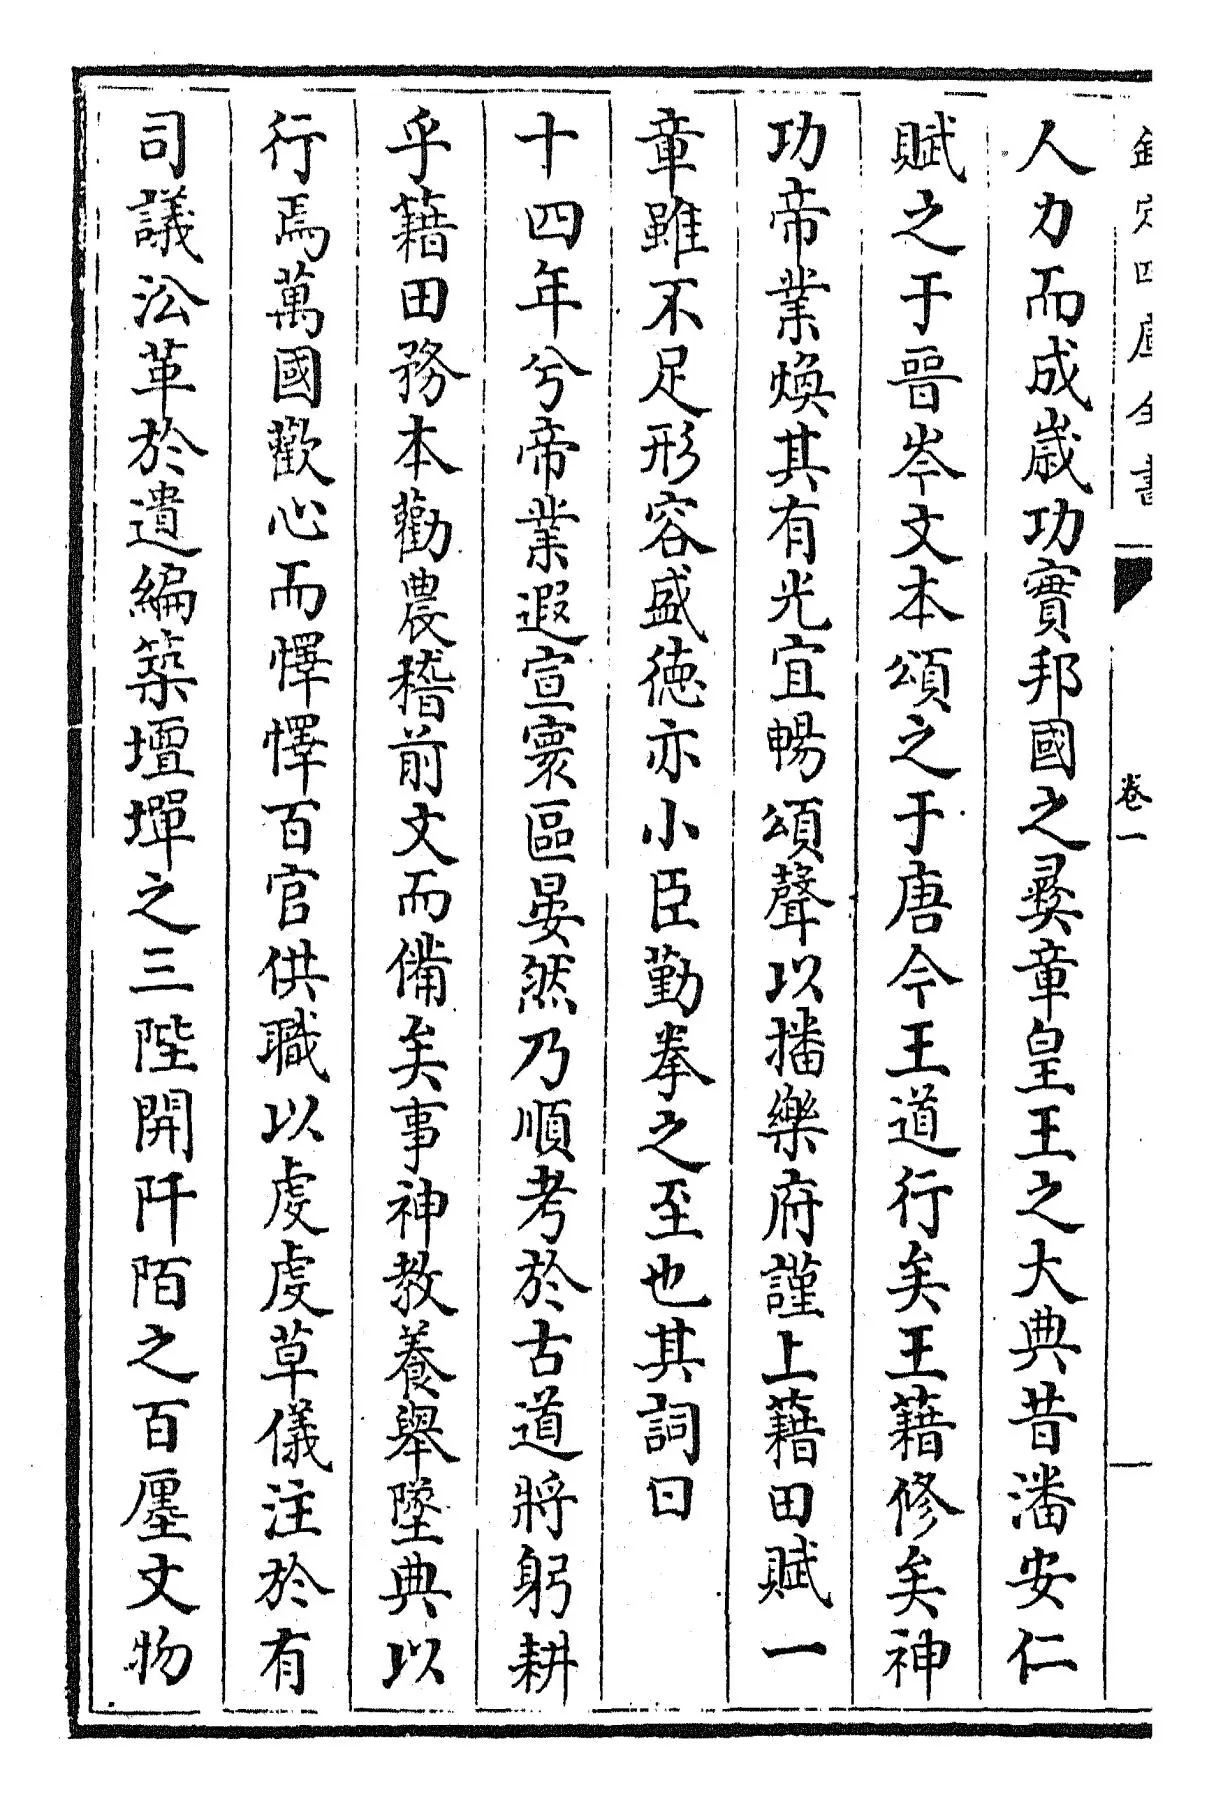 欽定四庫全書
卷一
人力而成歳功實邦國之彛章皇王之大典昔潘安仁
賦之于晉岑文本頌之于唐今王道行矣王籍修矣神
功帝業煥其有光宜暢頌聲以播樂府謹上籍田賦一
章雖不足形容盛徳亦小臣勤拳之至也其詞曰
十四年兮帝業遐宣寰區晏然乃順考於古道將躬耕
乎籍田務本勸農稽前文而備矣事神教養舉墜典以
行焉萬國歡心而懌懌百官供職以虔虔草儀注於有
司議㳂革於遺編築壇墠之三陛開阡陌之百廛文物